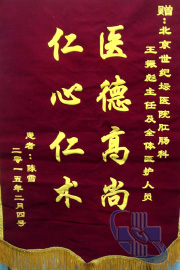 赠:北京世纪坛医院肛肠科
王振彪主任及全体医护人员
医德高尚
仁心仁术
患者:陈雪
二零一五年二月四号